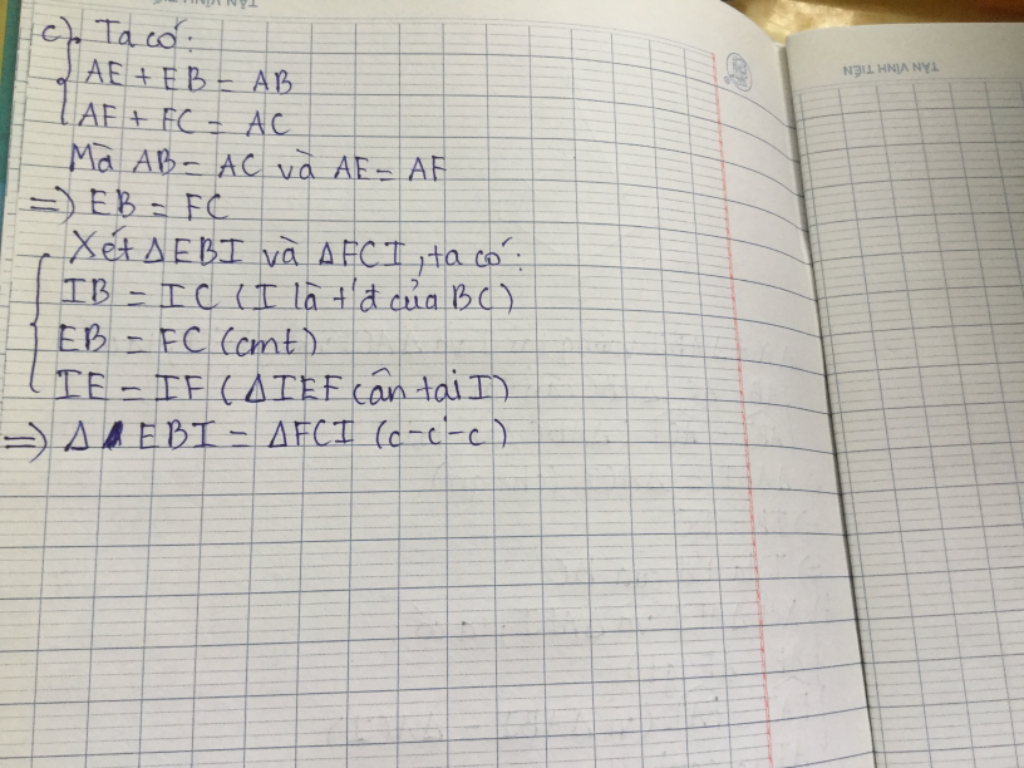 TÂN VĨNH TIẾN
c). Ta có:
AE + EB = AB
AF + FC = AC
Mà AB = AC và AE = AF
=) EB = FC
Xét ΔEBI và ΔFCI, ta có:
IB = IC (I là t'đ của BC)
EB = FC (cmt)
IE = IF (ΔIEF cân tại I)
=) Δ EBI = ΔFCI (c-c-c)
TÂN VĨNH TIẾN